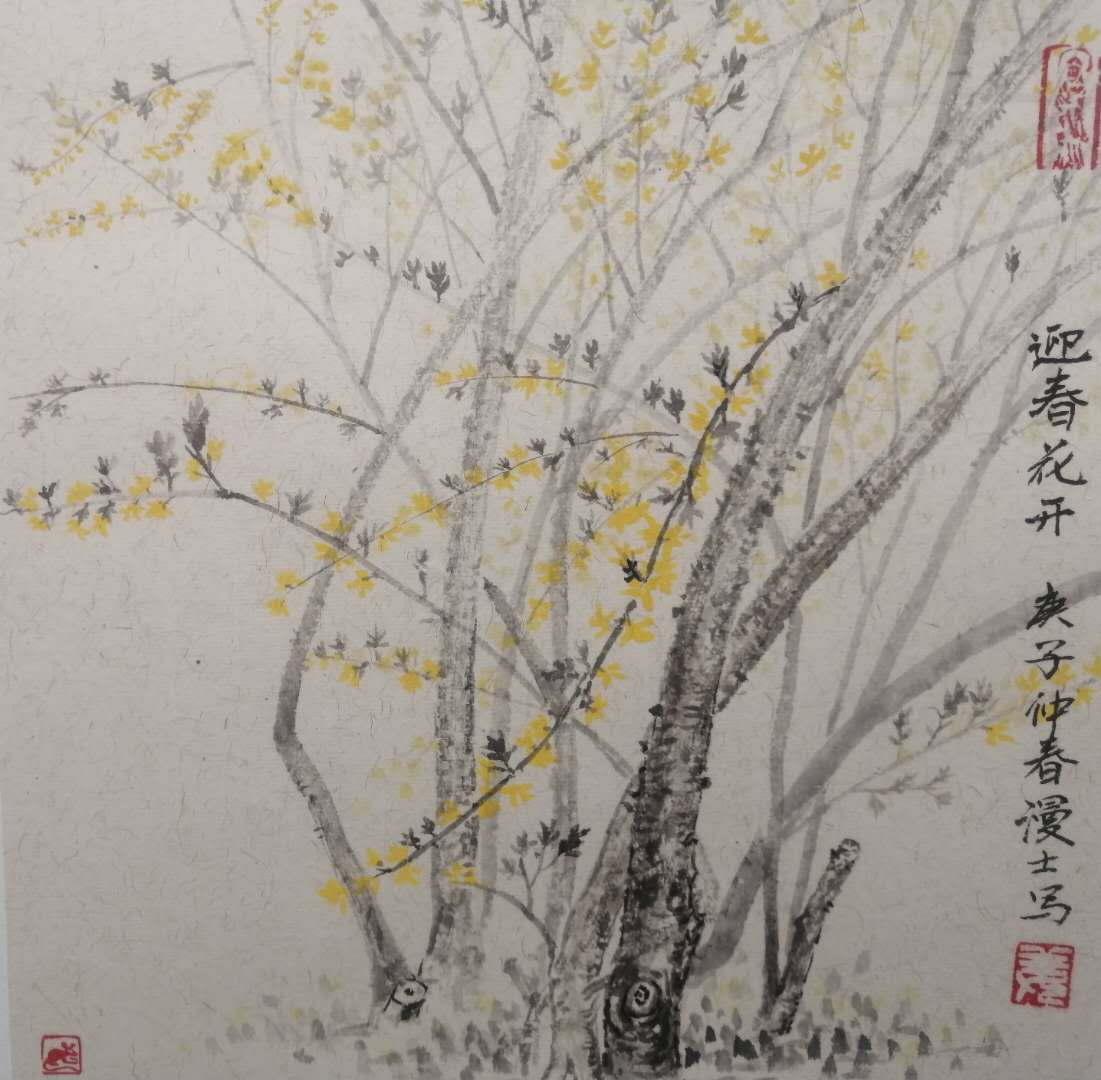 迎春花开 庚子仲春漫士写